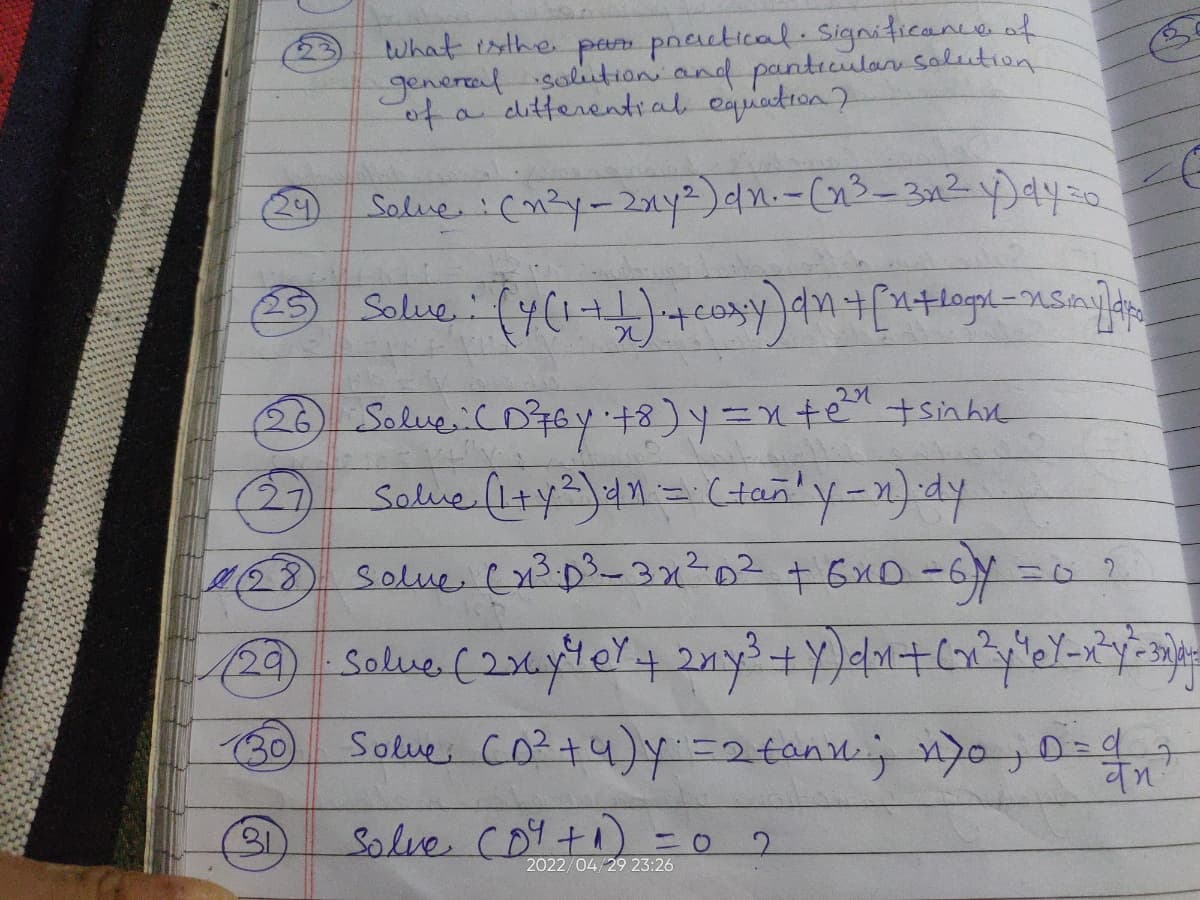 23 What is the practical. Significance of
general solution and particular solution
of a differential equation?
24 Solve : (x²y - 2xy²) dx. - (x³ - 3x²y) dy = 0
25 Solve : (y(1 + 1/x) + cos y) dx + [x + logx - x sin y] dy = 0
26 Solve : (D² + 6y + 8) y = x + e²ˣ + sin hx
27 Solve (1 + y²) dx = (tan⁻¹ y - x) dy
28 Solve (x³D³ - 3x²D² + 6xD - 6)y = 0 ?
29 Solve (2xy⁴eʸ + 2xy³ + y) dx + (x²y⁴eʸ - x²y² - 3x) dy =
30 Solve (D² + 4) y = 2 tan x ; x > 0 , D = d/dx ?
31 Solve (D⁴ + 1) = 0 ?
2022/04/29 23:26